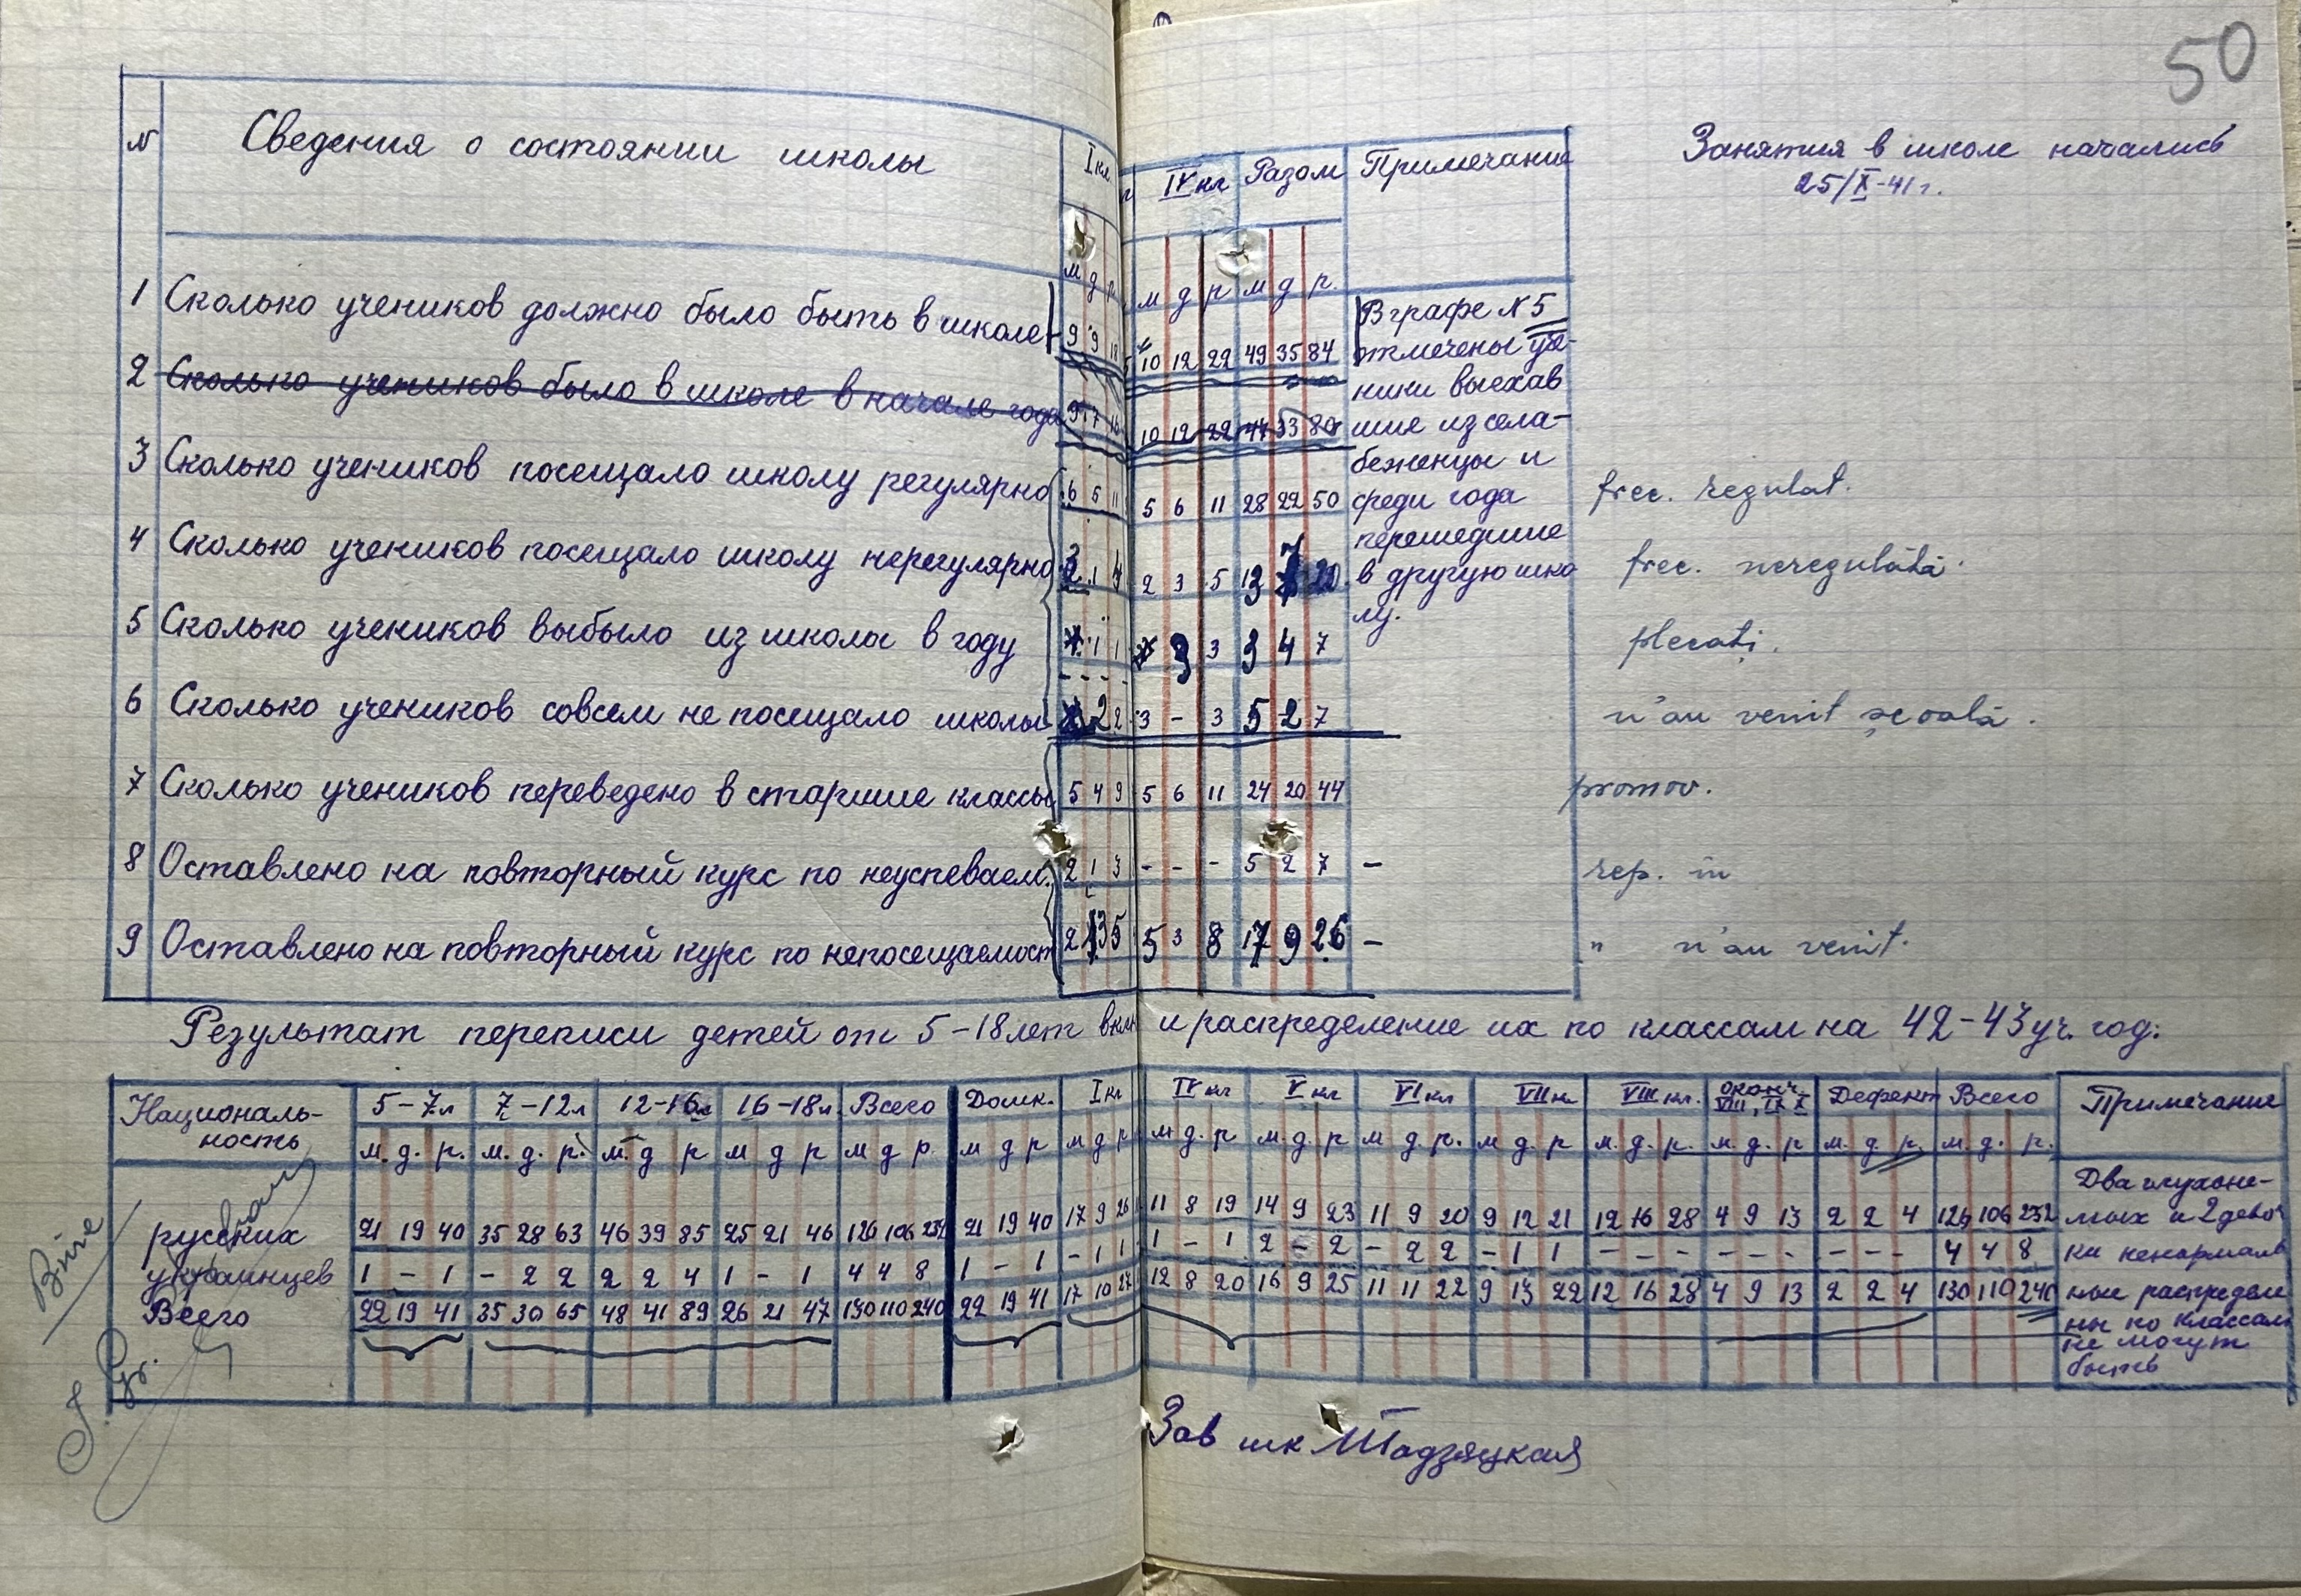 50
N Сведения о состоянии школы I кл IV кл Разом Примечание
Занятия в школе начались
25/X-41 г.
м д р м д р м д р.
1 Сколько учеников должно было быть в школе 9 9 18 10 12 22 49 35 84
2 Сколько учеников было в школе в начале года 9 7 16 10 12 22 47 33 80
3 Сколько учеников посещало школу регулярно 6 5 11 5 6 11 28 22 50
4 Сколько учеников посещало школу нерегулярно 3 1 4 2 3 5 13 7 20
5 Сколько учеников выбыло из школы в году 1 1 3 3 3 4 7
6 Сколько учеников совсем не посещало школы 2 2 3 - 3 5 2 7
7 Сколько учеников переведено в старшие классы 5 4 9 5 6 11 24 20 44
8 Оставлено на повторный курс по неуспеваем. 2 1 3 - - - 5 2 7 -
9 Оставлено на повторный курс по непосещаемост 2 3 5 5 3 8 17 9 26 -
В графе N 5
отмечены уче-
ники выехав
шие из села-
беженцы и
среди года
перешедшие
в другую шко
лу.
frec. regulat.
frec. neregulată.
plecați.
n'au venit școală.
promov.
rep. în
" n'au venit.
Результат переписи детей от 5-18 лет вкл и распределение их по классам на 42-43 уч. год:
Националь-
ность
5-7 л 7-12 л 12-16 л 16-18 л Всего Дошк. I кл IV кл V кл VI кл VII кл VIII кл. оконч. VIII, IX X Дефект Всего Примечание
м. д. р. м. д. р. м. д р м д р м д р. м д р м д р м д. р м. д. р м д. р. м д. р м. д. р. м. д. р м. д. р. м. д. р.
русских 21 19 40 35 28 63 46 39 85 25 21 46 126 106 232 21 19 40 17 9 26 11 8 19 14 9 23 11 9 20 9 12 21 12 16 28 4 9 13 2 2 4 126 106 232
украинцев 1 - 1 - 2 2 2 2 4 1 - 1 4 4 8 1 - 1 - 1 1 1 - 1 2 - 2 - 2 2 - 1 1 - - - - - - - - - 4 4 8
Всего 22 19 41 35 30 65 48 41 89 26 21 47 130 110 240 22 19 41 17 10 27 12 8 20 16 9 25 11 11 22 9 13 22 12 16 28 4 9 13 2 2 4 130 110 240
Два глухоне-
мых и 2 дево
ки ненормаль
ные распределе
ны по классам
не могут
быть
Bine
Зав шк